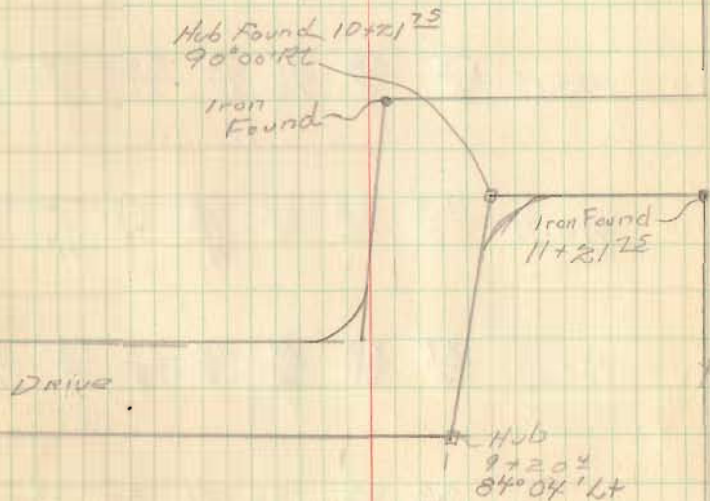 Hub Found 10+21 75
90°00' Rt
Iron
Found
Iron Found
11+21 75
Drive
Hub
9+20 4
84°04' Lt